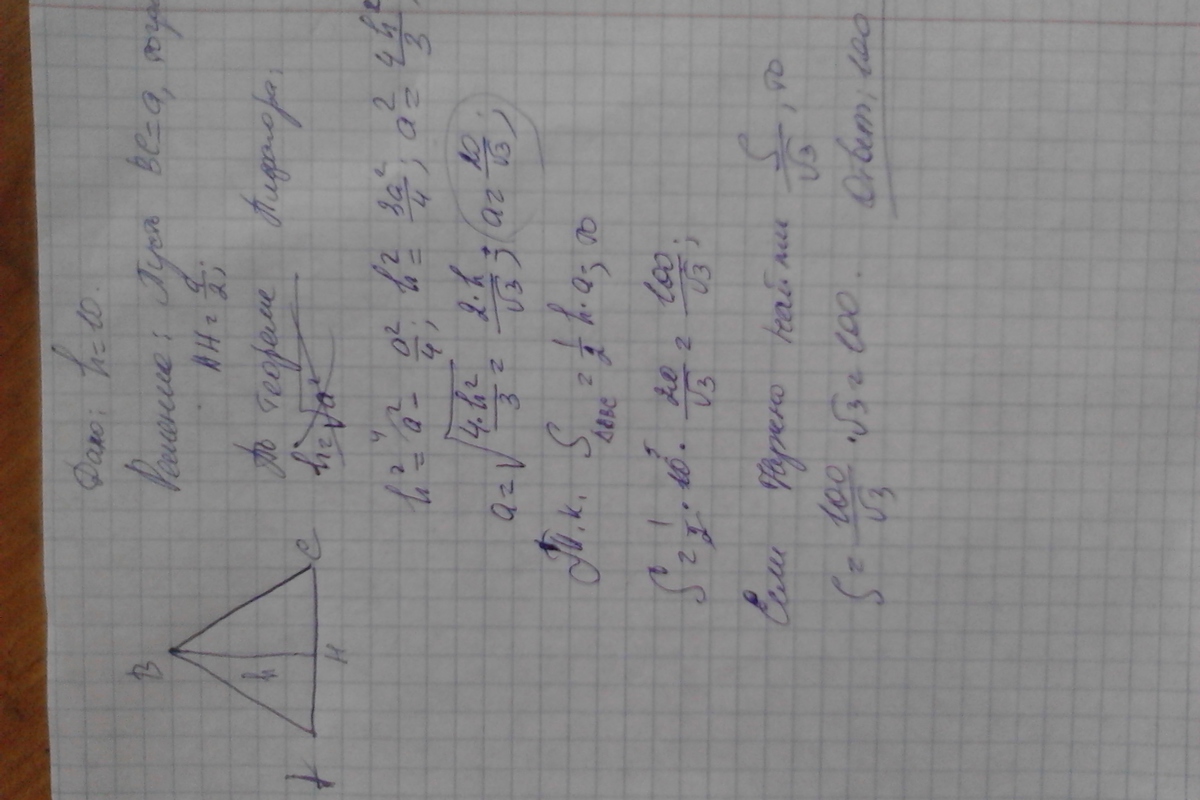 B
h
A H C
Дано: h=10.
Решение: Пусть BC=a, тогда
AH=a/2;
По теореме Пифагора:
h²=a²-a²/4; h²=3a²/4; a²=4h²/3;
a=√(4·h²/3)=2·h/√3; a=20/√3;
Т.к. S ABC=1/2 h·a; то
S=1/2·10·20/√3=100/√3;
Если нужно найти S/√3, то
S=100/√3·√3=100.
Ответ: 100